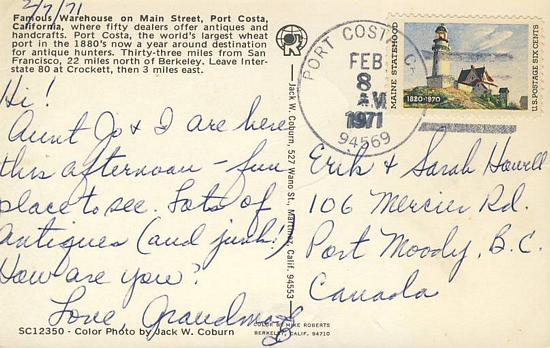 2/7/71
Famous Warehouse on Main Street, Port Costa,
California, where fifty dealers offer antiques and
handcrafts. Port Costa, the world's largest wheat
port in the 1880's now a year around destination
for antique hunters. Thirty-three miles from San
Francisco, 22 miles north of Berkeley. Leave Inter-
state 80 at Crockett, then 3 miles east.
Hi!
Aunt Jo & I are here
this afternoon - fun
place to see. Lots of
antiques (and junk!)
How are you?
Love, Grandma
SC12350 - Color Photo by Jack W. Coburn
Jack W. Coburn, 527 Wano St., Martinez, Calif. 94553
COLOR BY MIKE ROBERTS
BERKELEY, CALIF. 94710
PORT COSTA, CA
FEB
8
AM
1971
94569
MAINE STATEHOOD
1820-1970
U.S. POSTAGE SIX CENTS
Erik & Sarah Howell
106 Mercier Rd.
Port Moody, B.C.
Canada